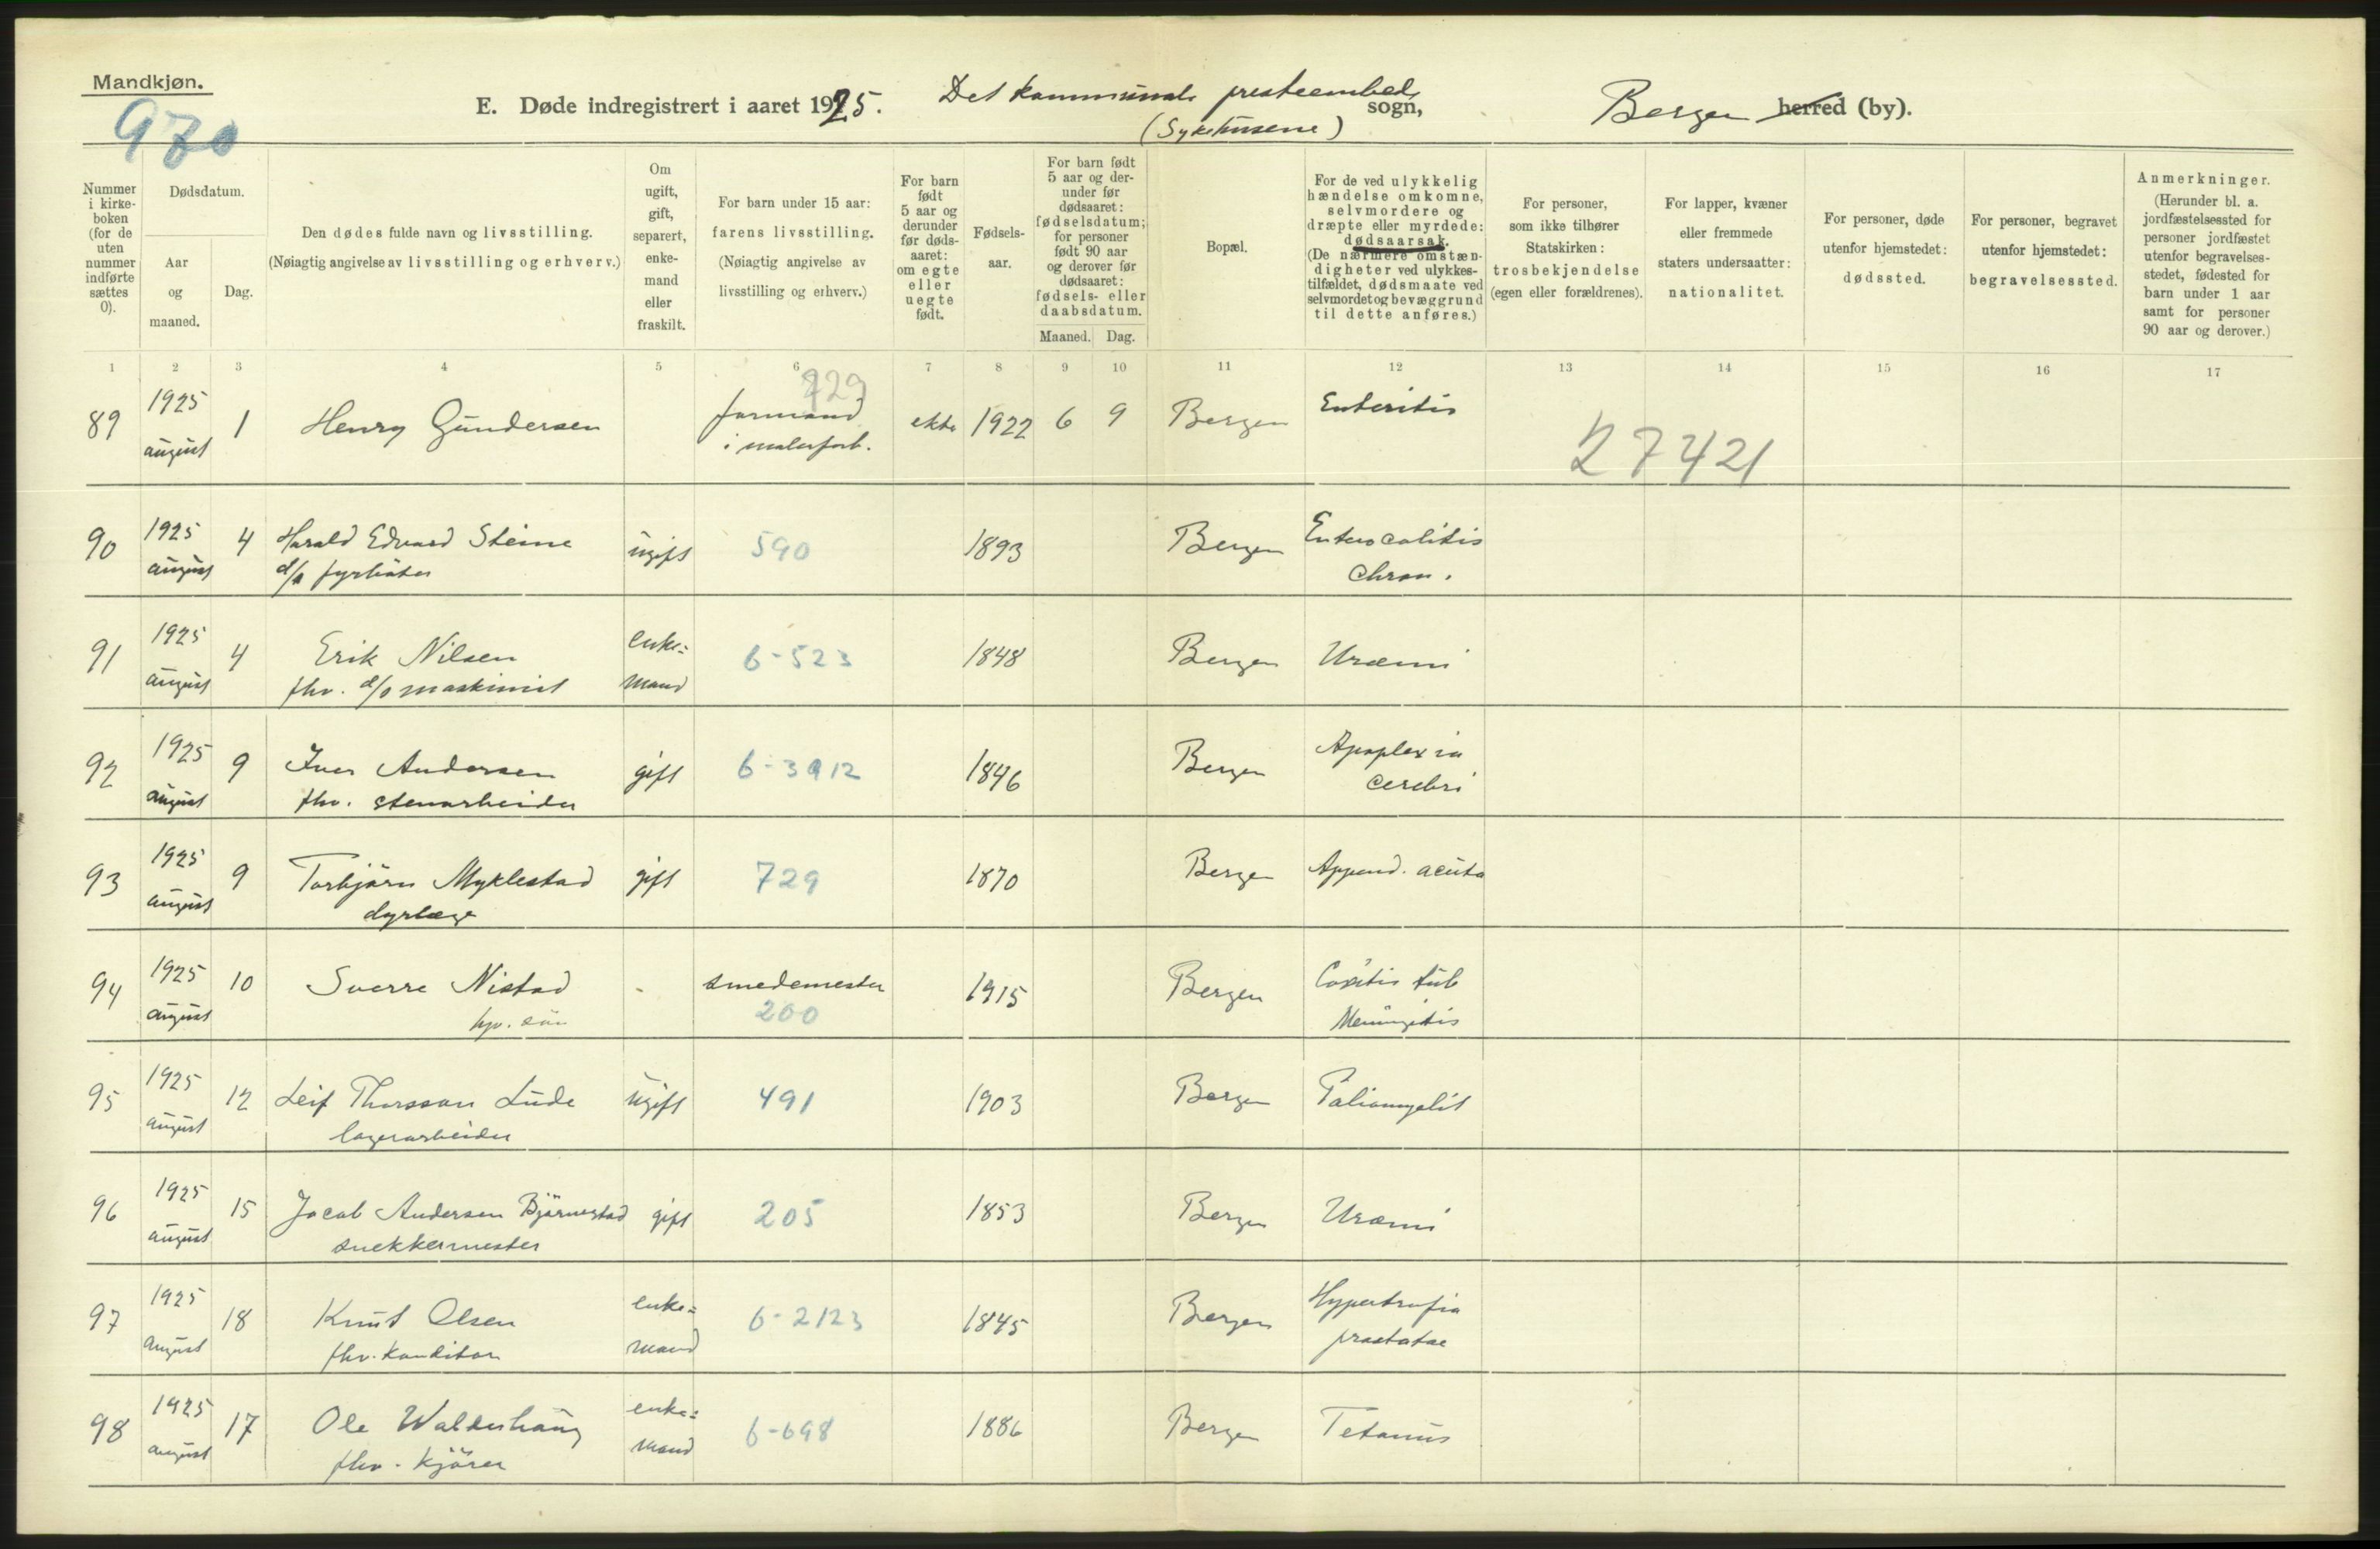 Mandkjøn.
970
E. Døde indregistrert i aaret 1925.
Det kommunale presteembed, sogn,
(Sykehusene)
Bergen herred (by).
Nummer i kirkeboken (for de uten nummer indførte sættes 0).
Dødsdatum.
Aar og maaned.
Dag.
Den dødes fulde navn og livsstilling.
(Nøiagtig angivelse av livsstilling og erhverv.)
Om ugift, gift, separert, enkemand eller fraskilt.
For barn under 15 aar:
farens livsstilling.
(Nøiagtig angivelse av livsstilling og erhverv.)
For barn født 5 aar og derunder før dødsaaret: om egte eller uegte født.
Fødselsaar.
For barn født 5 aar og derunder før dødsaaret: fødselsdatum; for personer født 90 aar og derover før dødsaaret: fødsels- eller daabsdatum.
Maaned. Dag.
Bopæl.
For de ved ulykkelig hændelse omkomne, selvmordere og dræpte eller myrdede: dødsaarsak.
(De nærmere omstændigheter ved ulykkestilfældet, dødsmaate ved selvmordet og bevæggrund til dette anføres.)
For personer, som ikke tilhører Statskirken: trosbekjendelse (egen eller forældrenes).
For lapper, kvæner eller fremmede staters undersaatter: nationalitet.
For personer, døde utenfor hjemstedet: dødssted.
For personer, begravet utenfor hjemstedet: begravelsessted.
Anmerkninger.
(Herunder bl. a. jordfæstelsessted for personer jordfæstet utenfor begravelsesstedet, fødested for barn under 1 aar samt for personer 90 aar og derover.)
1 2 3 4 5 6 7 8 9 10 11 12 13 14 15 16 17
729
89 1925 august 1 Henry Gundersen formand ekte 1922 6 9 Bergen Enteritis
i malerforb.
27421
90 1925 august 4 Harald Edvard Steine ugift 590 1893 Bergen Enterocolitis
d/s fyrbøter chron.
91 1925 august 4 Erik Nilsen enke= 6-523 1848 Bergen Uræmi
fhv. d/s maskinist mand
92 1925 august 9 Iver Andersen gift 6-3912 1846 Bergen Apoplexia
fhv. stenarbeider cerebri
93 1925 august 9 Torbjørn Myklestad gift 729 1870 Bergen Append. acuta
dyrlæge
94 1925 august 10 Sverre Nistad - smedemester 1915 Bergen Coxitis tub
hjv. søn 200 Meningitis
95 1925 august 12 Leif Thorsson Lude ugift 491 1903 Bergen Poliomyelit
lagerarbeider
96 1925 august 15 Jacob Andersen Bjørnestad gift 205 1853 Bergen Uræmi
snekkermester
97 1925 august 18 Knut Olsen enke= 6-2123 1845 Bergen Hypertrofia
fhv. konditor mand prostatae
98 1925 august 17 Ole Walderhaug enke= 6-698 1886 Bergen Tetanus
fhv. kjører mand